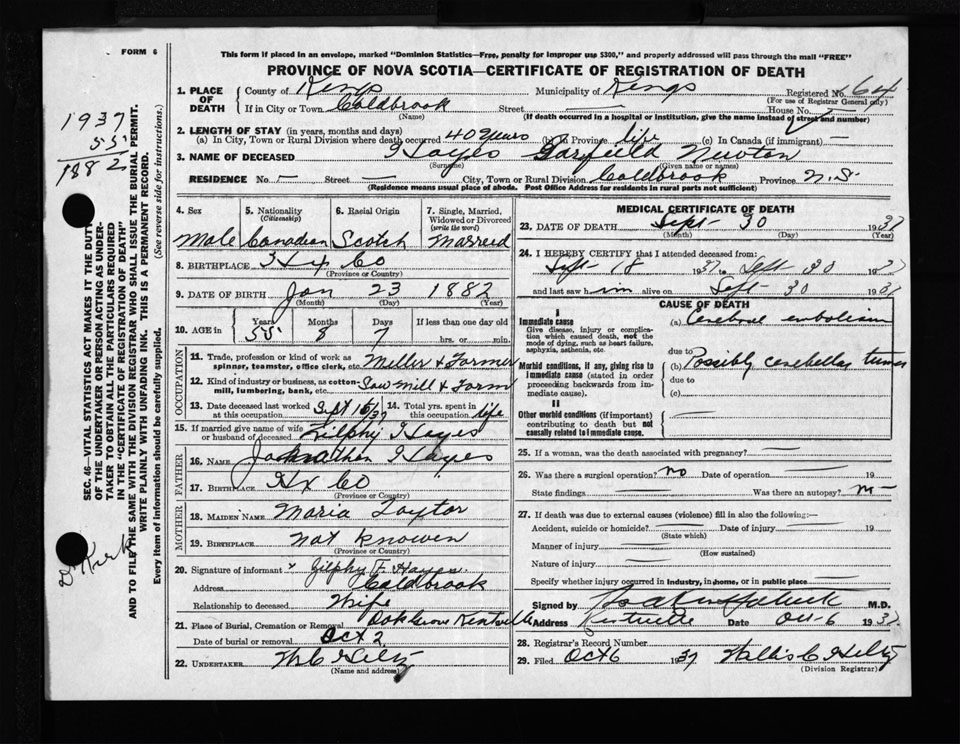 FORM 6
This form if placed in an envelope, marked "Dominion Statistics—Free, penalty for improper use $300," and properly addressed will pass through the mail "FREE"
PROVINCE OF NOVA SCOTIA—CERTIFICATE OF REGISTRATION OF DEATH
1. PLACE OF DEATH
County of Kings Municipality of Kings Registered No. 664
(For use of Registrar General only)
If in City or Town Coldbrook Street — House No.
(Name) (If death occurred in a hospital or institution, give the name instead of street and number)
2. LENGTH OF STAY (in years, months and days)
(a) In City, Town or Rural Division where death occurred 40 years (b) In Province life (c) In Canada (if immigrant) —
3. NAME OF DECEASED Hayes Garfield Newton
(Surname) (Given name or names)
RESIDENCE No. — Street — City, Town or Rural Division Coldbrook Province N.S.
(Residence means usual place of abode. Post Office Address for residents in rural parts not sufficient)
4. Sex
Male
5. Nationality
(Citizenship)
Canadian
6. Racial Origin
Scotch
7. Single, Married, Widowed or Divorced
(write the word)
Married
8. BIRTHPLACE Hfx Co
(Province or Country)
9. DATE OF BIRTH Jan 23 1882
(Month) (Day) (Year)
10. AGE in
Years Months Days If less than one day old
55 8 7 hrs. or min.
OCCUPATION
11. Trade, profession or kind of work as spinner, teamster, office clerk, etc. Miller & Farmer
12. Kind of industry or business, as cotton-mill, lumbering, bank, etc. Saw mill & Farm
13. Date deceased last worked at this occupation Sept 15/37
14. Total yrs. spent in this occupation life
15. If married give name of wife or husband of deceased Zilphy Hayes
FATHER
16. NAME Johnathan Hayes
17. BIRTHPLACE Hx Co
(Province or Country)
MOTHER
18. MAIDEN NAME Maria Taylor
19. BIRTHPLACE Not Knowen
(Province or Country)
20. Signature of informant Zilphy F. Hayes
Address Coldbrook
Relationship to deceased Wife
21. Place of Burial, Cremation or Removal Oak Grove Kentville
Date of burial or removal Oct 2
22. UNDERTAKER
(Name and address)
MEDICAL CERTIFICATE OF DEATH
23. DATE OF DEATH Sept 30 1937
(Month) (Day) (Year)
24. I HEREBY CERTIFY that I attended deceased from:
Sept 18 1937 to Sept 30 1937
and last saw him alive on Sept 30 1937
CAUSE OF DEATH
I
Immediate cause
Give disease, injury or complication which caused death, not the mode of dying, such as heart failure, asphyxia, asthenia, etc.
(a) Cerebral embolism
due to
Morbid conditions, if any, giving rise to immediate cause (stated in order proceeding backwards from immediate cause).
(b) Possibly cerebellar tumor
due to
(c)
II
Other morbid conditions (if important) contributing to death but not causally related to immediate cause.
25. If a woman, was the death associated with pregnancy? —
26. Was there a surgical operation? no Date of operation — 19
State findings — Was there an autopsy?
27. If death was due to external causes (violence) fill in also the following:—
Accident, suicide or homicide? — Date of injury — 19
(State which)
Manner of injury —
(How sustained)
Nature of injury —
Specify whether injury occurred in industry, in home, or in public place —
Signed by M.D.
Address Kentville Date Oct 6 1937
28. Registrar's Record Number
29. Filed Oct 6 1937
(Division Registrar)
1937
55
1882
SEC. 46—VITAL STATISTICS ACT MAKES IT THE DUTY
OF THE UNDERTAKER OR PERSON ACTING AS UNDER-
TAKER TO OBTAIN ALL THE PARTICULARS REQUIRED
IN THE "CERTIFICATE OF REGISTRATION OF DEATH"
AND TO FILE THE SAME WITH THE DIVISION REGISTRAR WHO SHALL ISSUE THE BURIAL PERMIT.
WRITE PLAINLY WITH UNFADING INK. THIS IS A PERMANENT RECORD.
Every item of information should be carefully supplied. (See reverse side for instructions.)